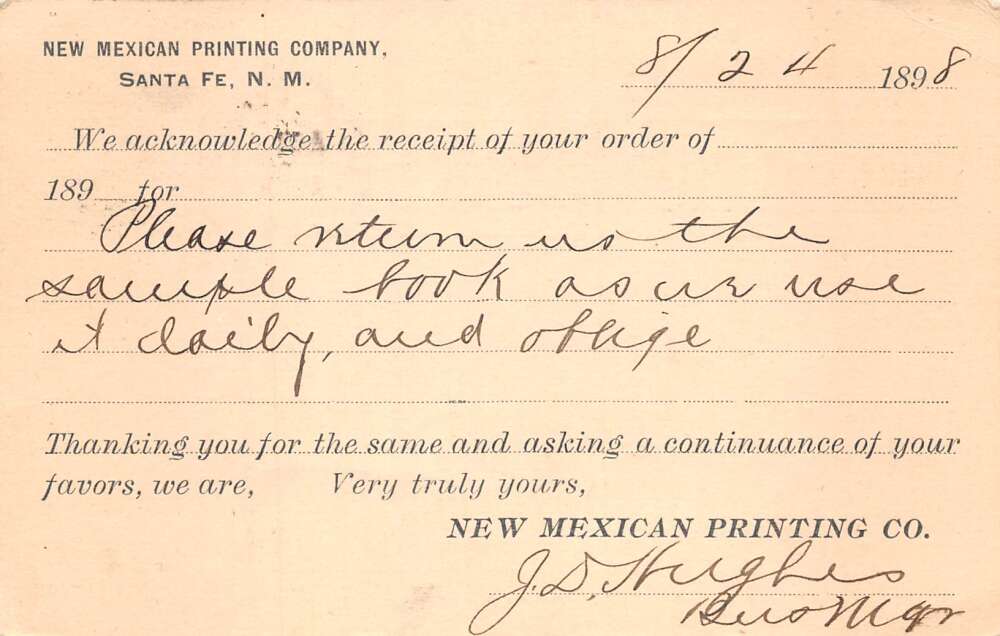 NEW MEXICAN PRINTING COMPANY,
SANTA FE, N. M.
8/24 1898
We acknowledge the receipt of your order of
189 for
Please return us the
sample book as we use
it daily, and oblige
Thanking you for the same and asking a continuance of your
favors, we are, Very truly yours,
NEW MEXICAN PRINTING CO.
J. D. Hughes
Bus Mgr